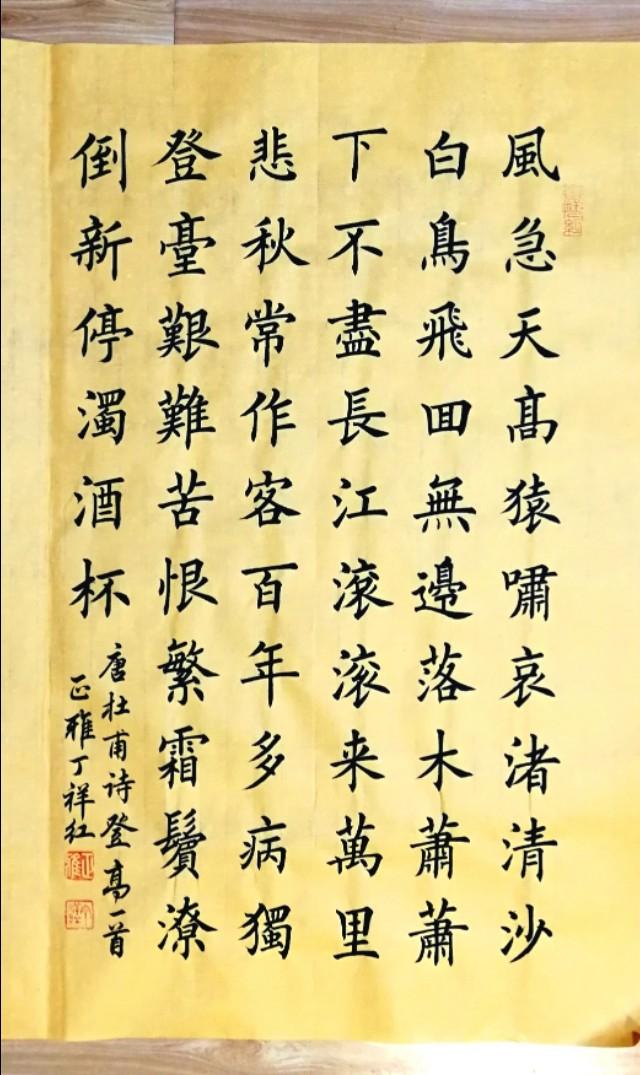 風急天高猿嘯哀渚清沙
白鳥飛回無邊落木蕭蕭
下不盡長江滾滾来萬里
悲秋常作客百年多病獨
登臺艱難苦恨繁霜鬢潦
倒新停濁酒杯
唐杜甫诗登高一首
正雅丁祥红